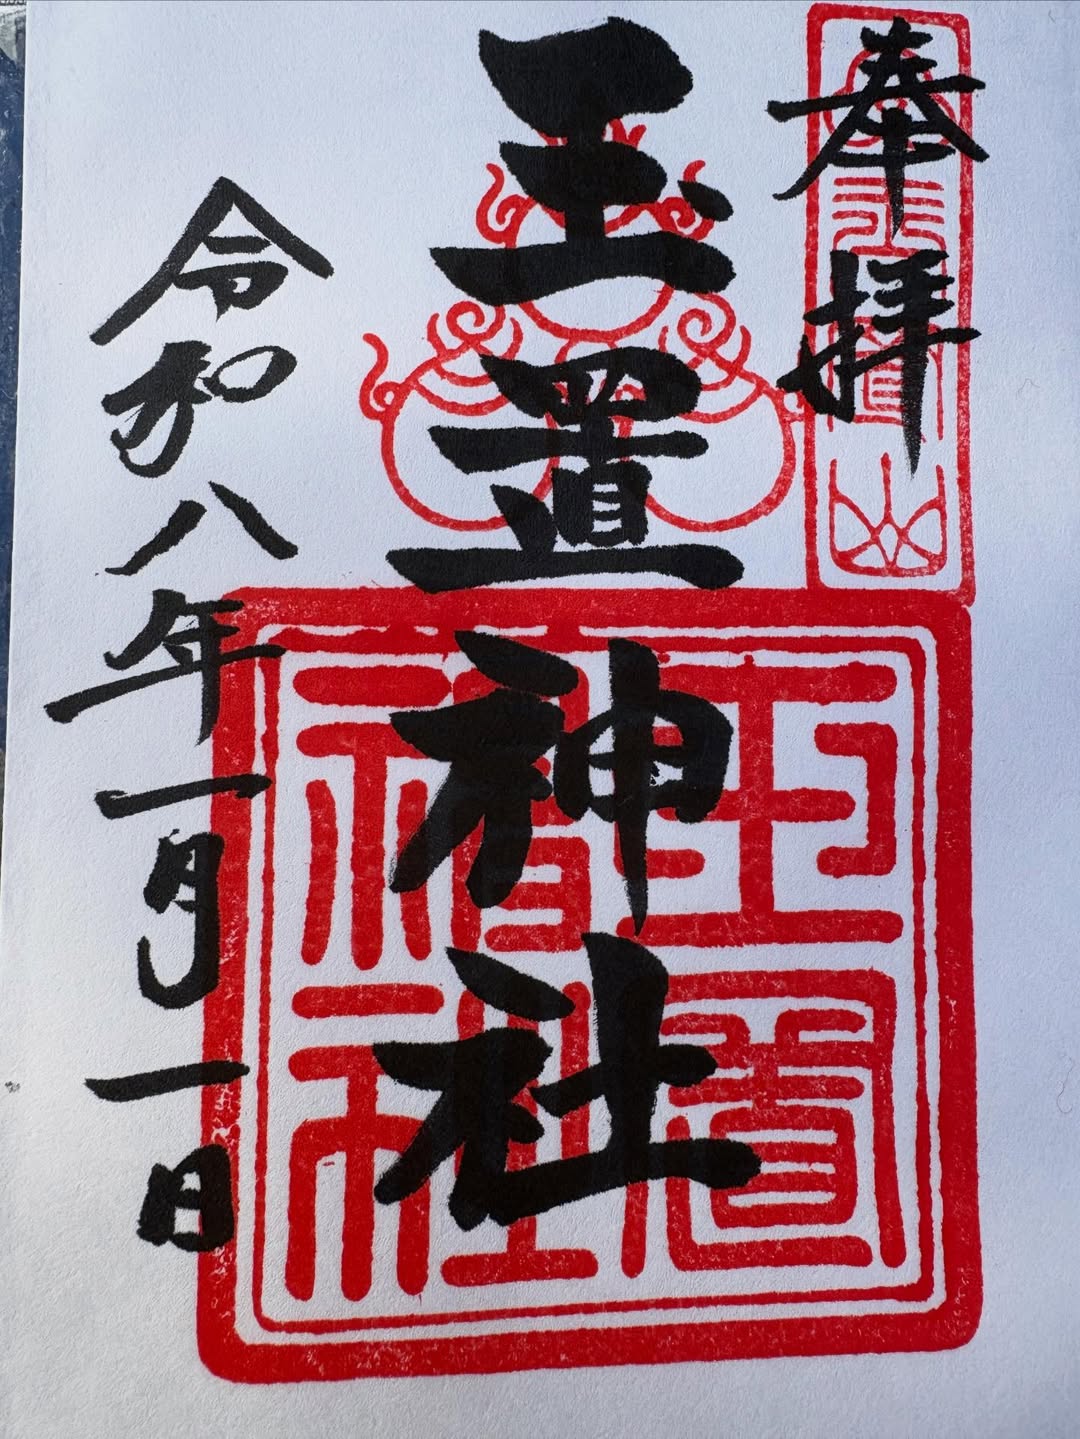 奉拝
玉置神社
令和八年一月一日
玉置
神社